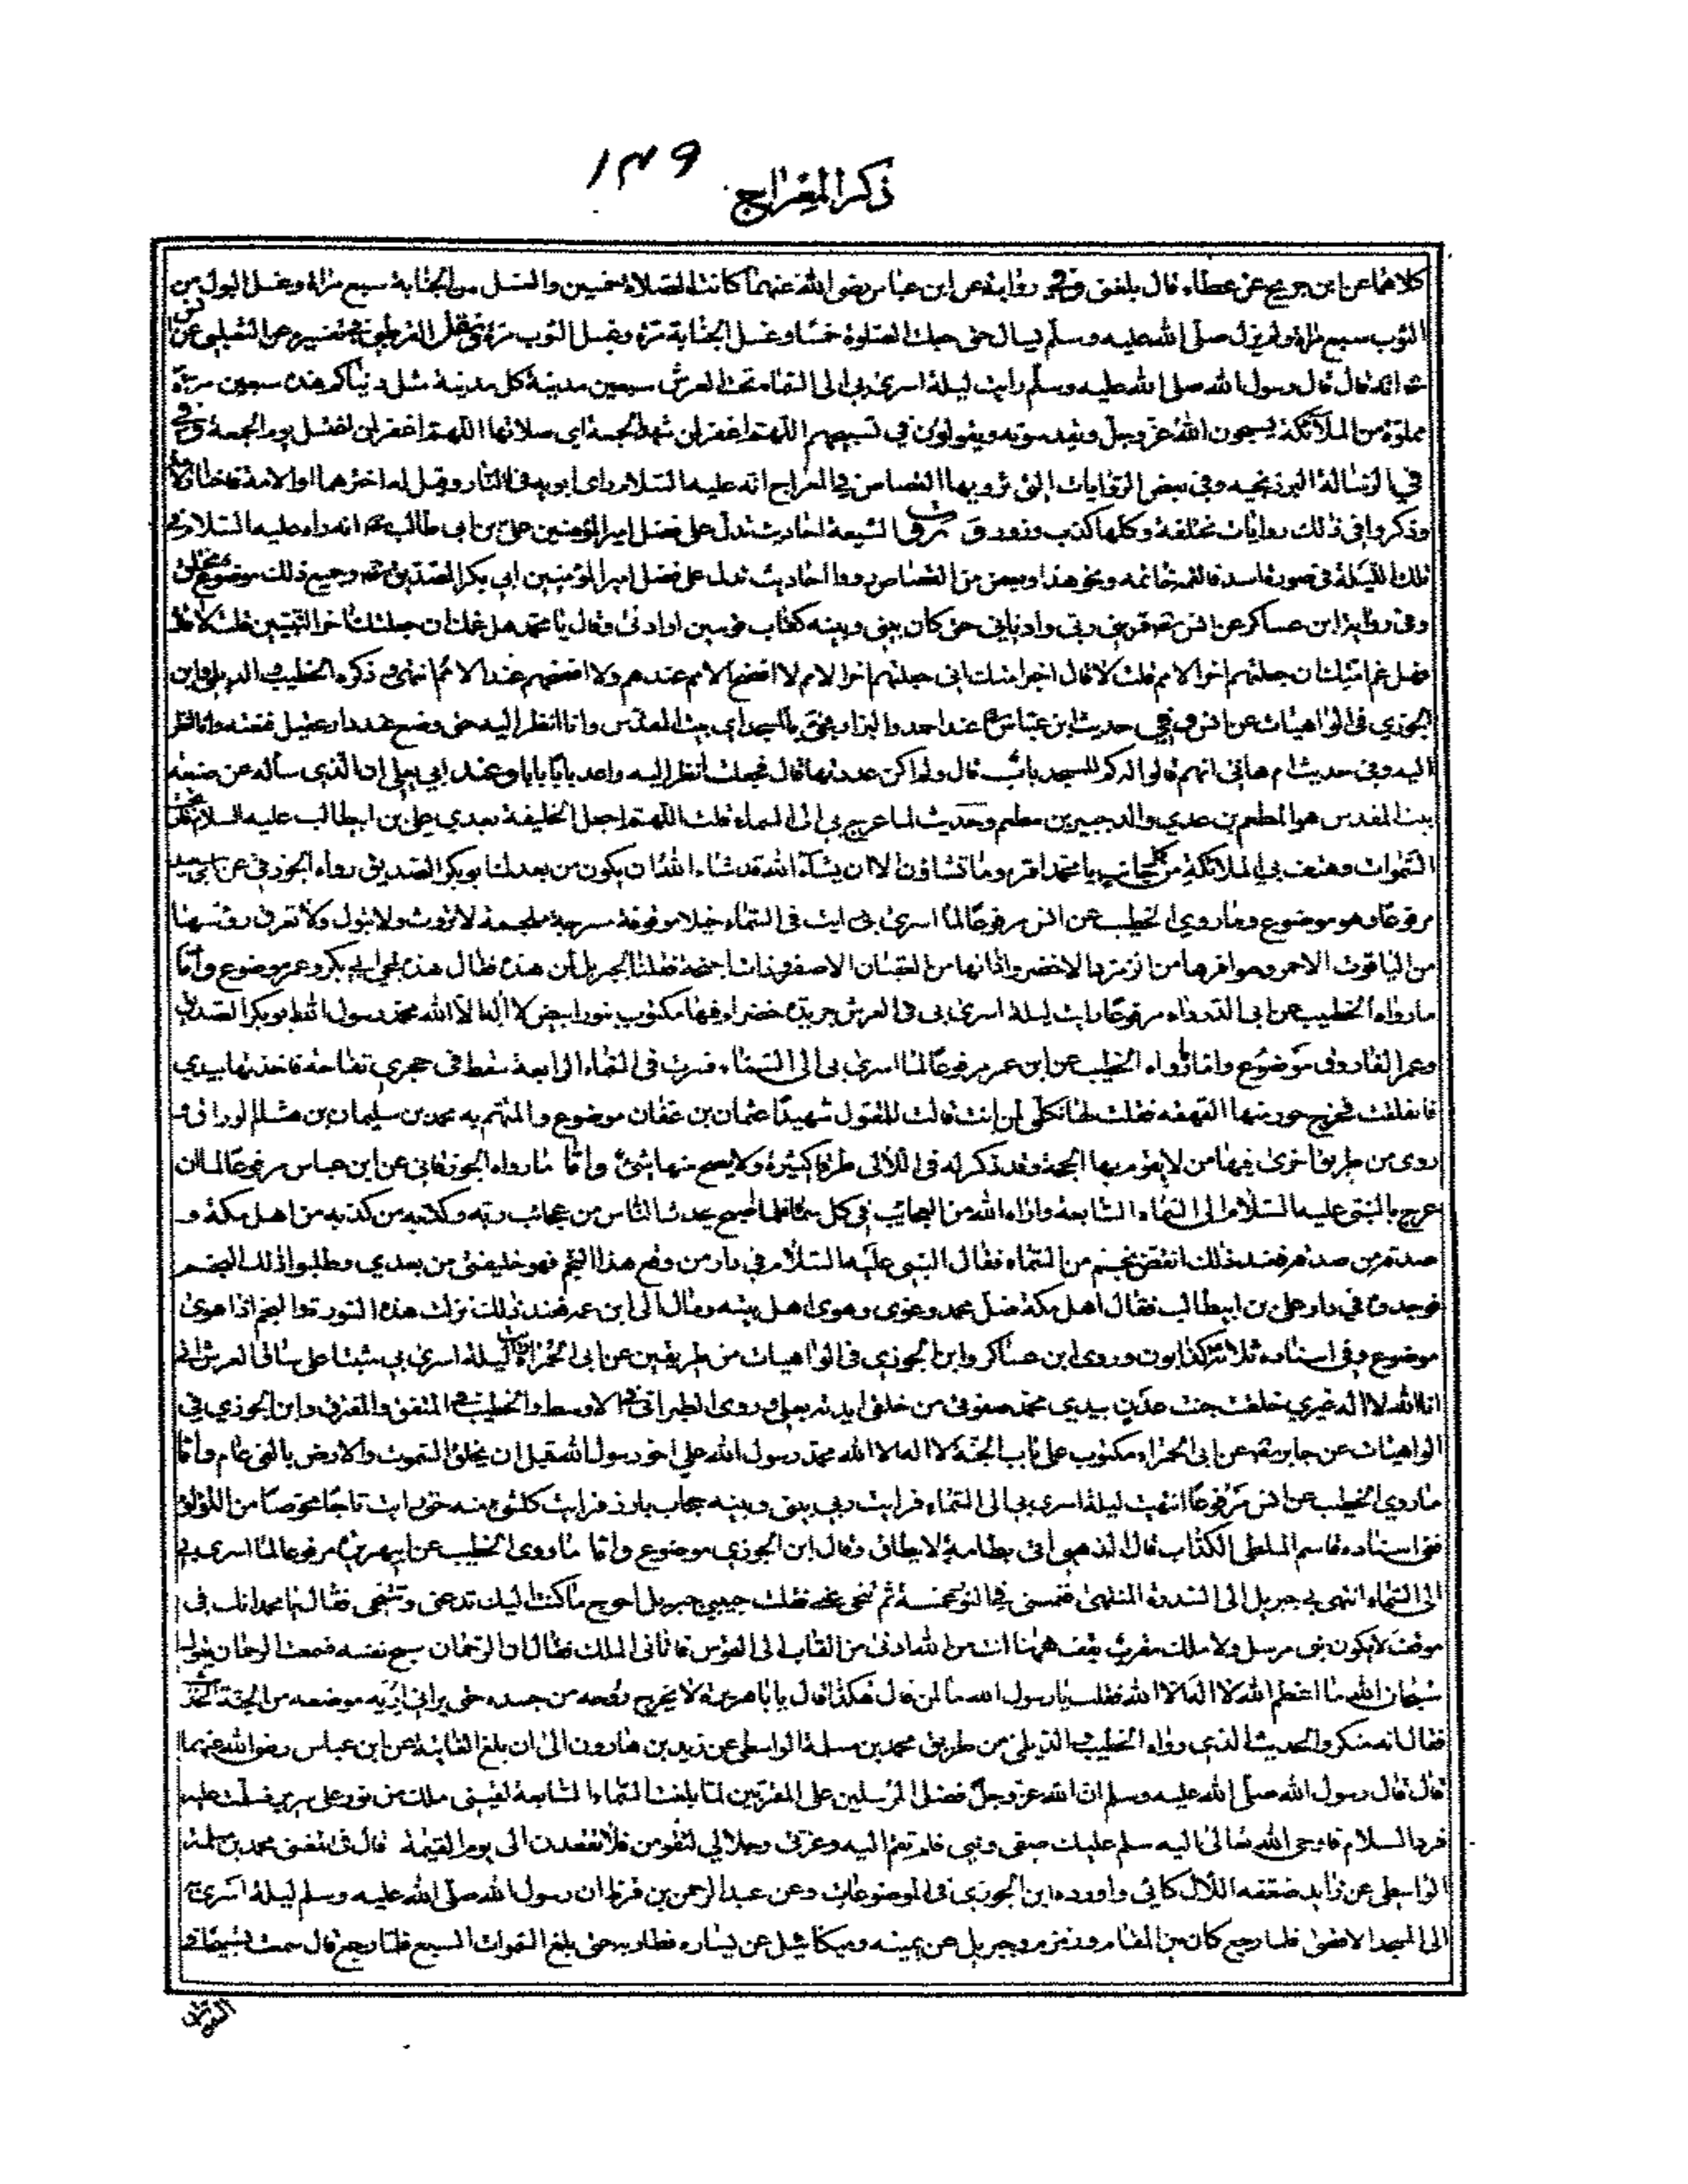 ١٣٩
ذكر المعراج
كلاهما عن ابن جريج عن عطاء قال بلغني وفي رواية عن ابن عباس رضي الله عنهما كانت الصلاة خمسين والغسل من الجنابة سبع مراة وغسل البول من
الثوب سبع مراة ولم يزل صلى الله عليه وسلم يسال حتى جعلت الصلوة خمسا وغسل الجنابة مرة وغسل الثوب مرة نقل القرطبي في تفسيره عن الثعلبي عن
انه قال قال رسول الله صلى الله عليه وسلم رايت ليلة اسرى بي الى السماء تحت العرش سبعين مدينة كل مدينة مثل دنياكم هذه سبعين مرة
مملوة من الملائكة يسبحون الله عز وجل ويقدسونه ويقولون في تسبيحهم اللهم اغفر لمن شهد الجمعة اي صلاتها اللهم اغفر لمن اغتسل يوم الجمعة
في الرسالة البرزنجيه وفي بعض الروايات التي يرويها القصاص في المعراج انه عليه السلام راى ابويه في النار وقيل له اخترهما او الامة فاختار
وذكروا في ذلك روايات مختلفة وكلها كذب وزور الشيعة احاديث تدل على فضل امير المؤمنين علي بن ابي طالب انه راه عليه السلام في
تلك الليلة في صورة اسد فالقمه خاتمه ونحو هذا وبعض من القصاص رووا احاديث تدل على فضل امير المؤمنين ابي بكر الصديق وجميع ذلك موضوع
وفي رواية ابن عساكر عن انس قربني ربي وادناني حتى كان بيني وبينه كقاب قوسين او ادنى وقال يا محمد هل غمك ان جعلتك اخر النبيين قلت لا قال
فهل غم امتك ان جعلتهم اخر الامم قلت لا قال اخبر امتك اني جعلتهم اخر الامم لا افضح الامم عندهم ولا افضحهم عند الامم انتهى ذكره الخطيب والديلمي وابن
الجوزي في الواهيات عن انس وفي حديث ابن عباس عند احمد والبزار فجئ بالمسجد اي بيت المقدس وانا انظر اليه حتى وضع عند دار عقيل فنعته وانا انظر
اليه وفي حديث ام هاني انهم قالوا له كم للمسجد باب قال ولم اكن عددتها قال فجعلت انظر اليه واعد بابا بابا وعند ابي يعلى ان الذي سأله عن صفة
بيت المقدس هو المطعم بن عدي والد جبير بن مطعم وحديث لما عرج بي الى السماء قلت اللهم اجعل الخليفة بعدي علي بن ابيطالب عليه السلام
السموات وهتف بي الملائكة من كل جانب يا محمد اقرء وما تشاؤن الا ان يشاء الله قد شاء الله ان يكون من بعدك ابو بكر الصديق رواه الجوزقي عن ابي سعيد
مرفوعا وهو موضوع وما روى الخطيب عن انس مرفوعا لما اسرى بي رايت في السماء خيلا موقوفة مسرجة ملجمة لا تروث ولا تبول ولا تعرق رؤسها
من الياقوت الاحمر وحوافرها من الزمرد الاخضر وابدانها من العقيان الاصفر ذات اجنحة فقلت لجبريل لمن هذه فقال هذه لمحبي ابي بكر وعمر موضوع وأما
ما رواه الخطيب عن ابي الدرداء مرفوعا رايت ليلة اسرى بي في العرش جريدة خضراء فيها مكتوب بنور ابيض لا اله الا الله محمد رسول الله ابو بكر الصديق
وعمر الفاروق موضوع واما رواه الخطيب عن ابن عمر مرفوعا لما اسرى بي الى السماء فصرت في السماء الرابعة سقط في حجري تفاحة فاخذتها بيدي
فانفلقت فخرج حور منها القهقهه فقلت لها تكلمي لمن انت قالت للمقتول شهيدا عثمان بن عفان موضوع والمتهم به محمد بن سليمان بن هشام الوراق و
روى من طريق اخرى فيها من لا يقوم بها الحجة وقد ذكر له في اللآلي طرقا كثيرة ولا يصح منها شئ وأما ما رواه الجوزقاني عن ابن عباس مرفوعا لما ان
عرج بالنبي عليه السلام الى السماء السابعة واراه الله من العجائب في كل سماء فلما اصبح يحدث الناس من عجائب ربه وكذبه من كذبه من اهل مكة و
صدقه من صدقه فعند ذلك انقض نجم من السماء فقال النبي عليه السلام في دار من وقع هذا النجم فهو خليفتي من بعدي وطلبوا ذلك النجم
فوجدوه في دار علي بن ابيطالب فقال اهل مكة ضل محمد وغوى وهوى اهل بيته ومال الى ابن عمه فعند ذلك نزلت هذه السورة والنجم اذا هوى
موضوع وفي اسناده ثلاثة كذابون وروى ابن عساكر وابن الجوزي في الواهيات من طريقين عن ابي الحمراء رايت ليلة اسرى بي مثبتا على ساق العرش اني
انا الله لا اله غيري خلقت جنت عدن بيدي محمد صفوتي من خلقي ايدته بعلي وروى الطبراني في الاوسط والخطيب في المتفق والمفترق وابن الجوزي في
الواهيات عن جابر عن ابي الحمراء مكتوب على باب الجنة لا اله الا الله محمد رسول الله علي اخو رسول الله قبل ان يخلق السموات والارض بالفي عام وأما
ما روى الخطيب عن انس مرفوعا انتهيت ليلة اسرى بي الى السماء فرايت ربي بيني وبينه حجاب بارز فرايت كل شئ منه حتى رايت تاجا مخوصا من اللؤلؤ
ففي اسناده قاسم الملطي الكذاب قال الذهبي اتى بطامة لا تطاق وقال ابن الجوزي موضوع واما ما روى الخطيب عن ابي هريرة مرفوعا لما اسرى بي
الى السماء انتهى بي جبريل الى السدرة المنتهى فغمسني في النور غمسة ثم تنحى عني فقلت حبيبي جبريل احوج ما كنت اليك تدعني وتتنحى فقال يا محمد انك في
موقف لا يكون نبي مرسل ولا ملك مقرب يقف ههنا انت من الله ادنى من القاب الى القوس فاتاني الملك فقال ان الرحمان يسبح نفسه فسمعت الرحمان يقول
سبحان الله ما اعظم الله لا اله الا الله فقلت يا رسول الله ما لمن قال هكذا قال يا ابا هريرة لا يخرج روحه من جسده حتى يراني او يريه موضعه من الجنة
فقال انه منكر والحديث الذي رواه الخطيب الديلمي من طريق محمد بن مسلمة الواسطي عن زيد بن هارون الى ان بلغ الغاية عن ابن عباس رضي الله عنهما
قال قال رسول الله صلى الله عليه وسلم ان الله عز وجل فضل المرسلين على المقربين لما بلغت السماء السابعة لقيني ملك من نور على سرير فسلمت عليه
فرد السلام فاوحى الله تعالى اليه سلم عليك صفيي ونبيي فلم تقم اليه وعزتي وجلالي لتقومن فلا تقعدن الى يوم القيمة قال في المغني محمد بن مسلمة
الواسطي عن زايد ضعفه اللالكائي واورده ابن الجوزي في الموضوعات وعن عبد الرحمن بن قرط ان رسول الله صلى الله عليه وسلم ليلة اسرى
الى المسجد الاقصى فلما رجع كان بين المقام وزمزم وجبريل عن يمينه وميكائيل عن يساره فطار به حتى بلغ السموات السبع فلما رجع قال سمعت تسبيحا و